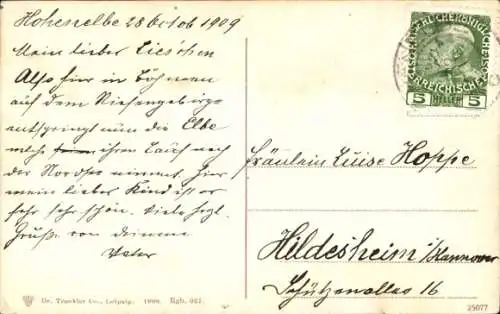 Hohenelbe 28 Octob 1909
Mein lieber Lieschen
Also hier in Böhmen
auf dem Riesengebirge
entspringt nun die Elbe
welche ihren Lauf nach
der Nordsee nimmt. Hier
mein liebes Kind ist es
sehr sehr schön. Viele herzl.
Grüße von deinem
Vater
KAISERLICHE KÖNIGLICHE
ÖSTERREICHISCHE POST
5 HELLER 5
Fräulein Luise Hoppe
Hildesheim i/Hannover
Schützenallee 16
Dr. Trenkler Co., Leipzig. 1909. Rgb. 021.
25077